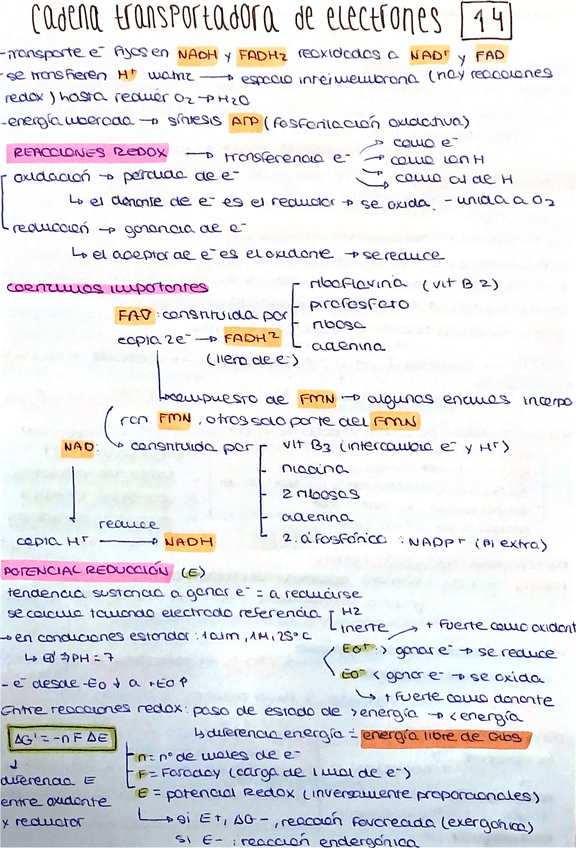 cadena transportadora de electrones 14
-transporte e⁻ fijos en NADH y FADH₂ reoxidados a NAD⁺ y FAD
-se transfieren H⁺ matriz → espacio intermembrana (hay reacciones
redox) hasta reducir O₂ → H₂O
-energía liberada → síntesis ATP (fosforilación oxidativa)
REACCIONES REDOX → transferencia e⁻ → como e⁻
→ como ion H
→ como de H
oxidación → pérdida de e⁻
↳ el donante de e⁻ es el reductor → se oxida. - unida a O₂
reducción → ganancia de e⁻
↳ el aceptor de e⁻ es el oxidante → se reduce
coenzimas importantes
FAD: constituida por riboflavina (vit B 2)
pirofosfato
ribosa
adenina
capta 2e⁻ → FADH²
(lleno de e⁻)
↳ compuesto de FMN → algunas enzimas incorpo
ran FMN, otros solo parte del FMN
NAD: ↳ constituida por vit B3 (intercambia e⁻ y H⁺)
niacina
2 ribosas
adenina
2. difosfórico : NADP⁺ (Pi extra)
capta H⁺ reduce → NADH
POTENCIAL REDUCCIÓN (E)
tendencia sustancia a ganar e⁻ = a reducirse
se calcula tomando electrodo referencia H2
inerte
→ en condiciones estándar: 1atm, 1M, 25°C
↳ E₀' → pH = 7
+ fuerte como oxidant
E₀⁺ : > ganar e⁻ → se reduce
E₀⁻ < ganar e⁻ → se oxida
↳ + fuerte como donante
- e⁻ desde -E₀ ↓ a +E₀ ↑
Entre reacciones redox: paso de estado de > energía → < energía
↳ diferencia energía = energía libre de Gibs
ΔG' = -n F ΔE
↓
diferencia E
entre oxidante
y reductor
n = nº de moles de e⁻
F = Faraday (carga de 1 mol de e⁻)
E = potencial Redox (inversamente proporcionales)
↳ si E+, ΔG -, reacción favorecida (exergónica)
si E- : reacción endergónica